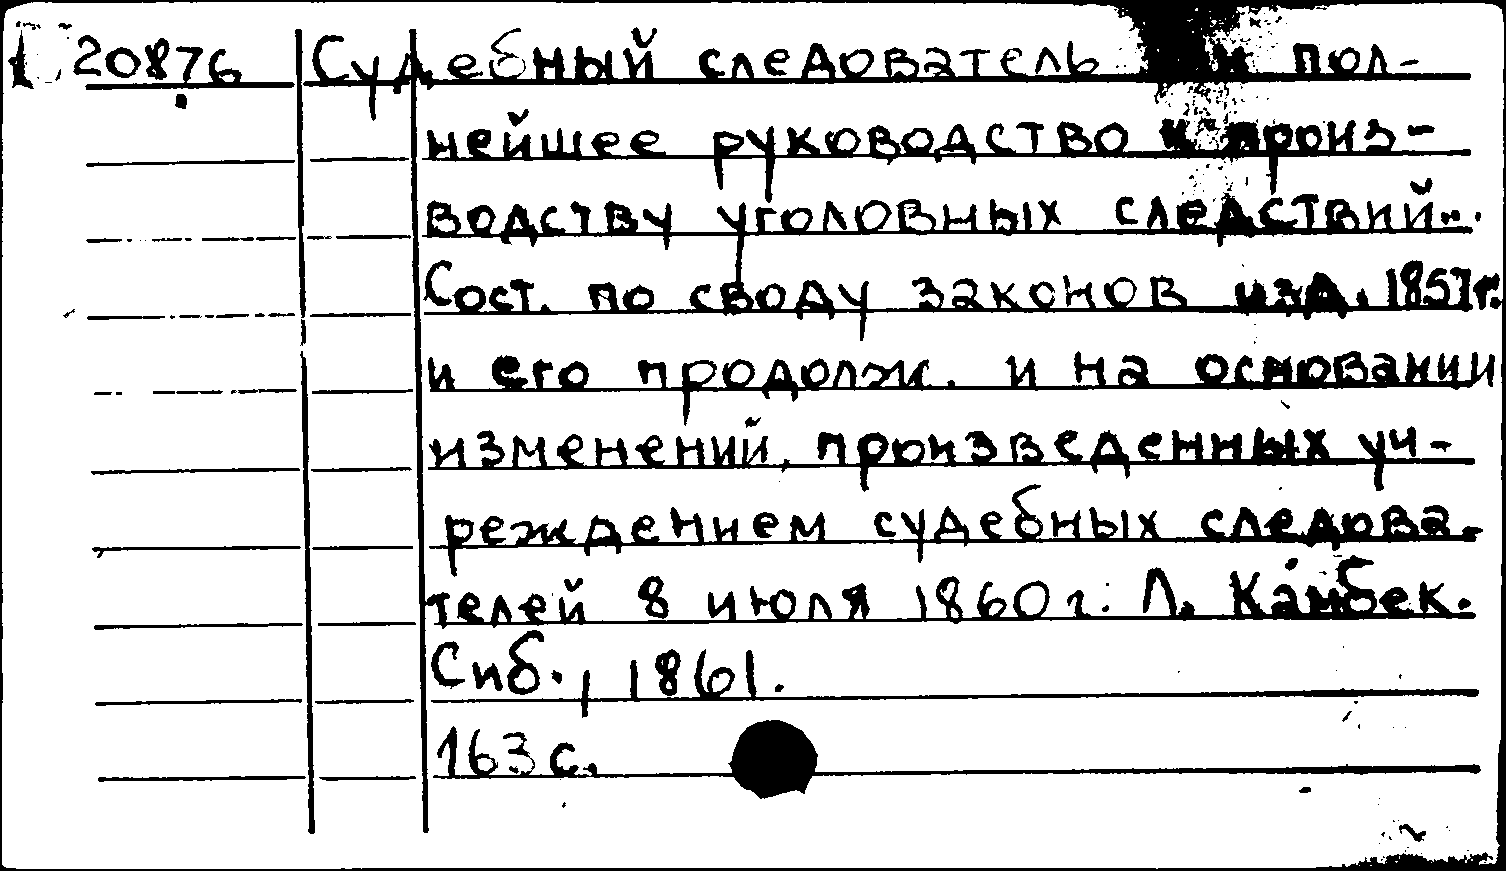 20876 Судебный следователь или пол-
нейшее руководство к произ-
водству уголовных следствий...
Сост. по своду законов изд. 1857г.
и его продолж. и на основании
изменений, произведенных уч-
реждением судебных следова-
телей 8 июля 1860г. Л. Камбек.
Спб., 1861.
163 с.